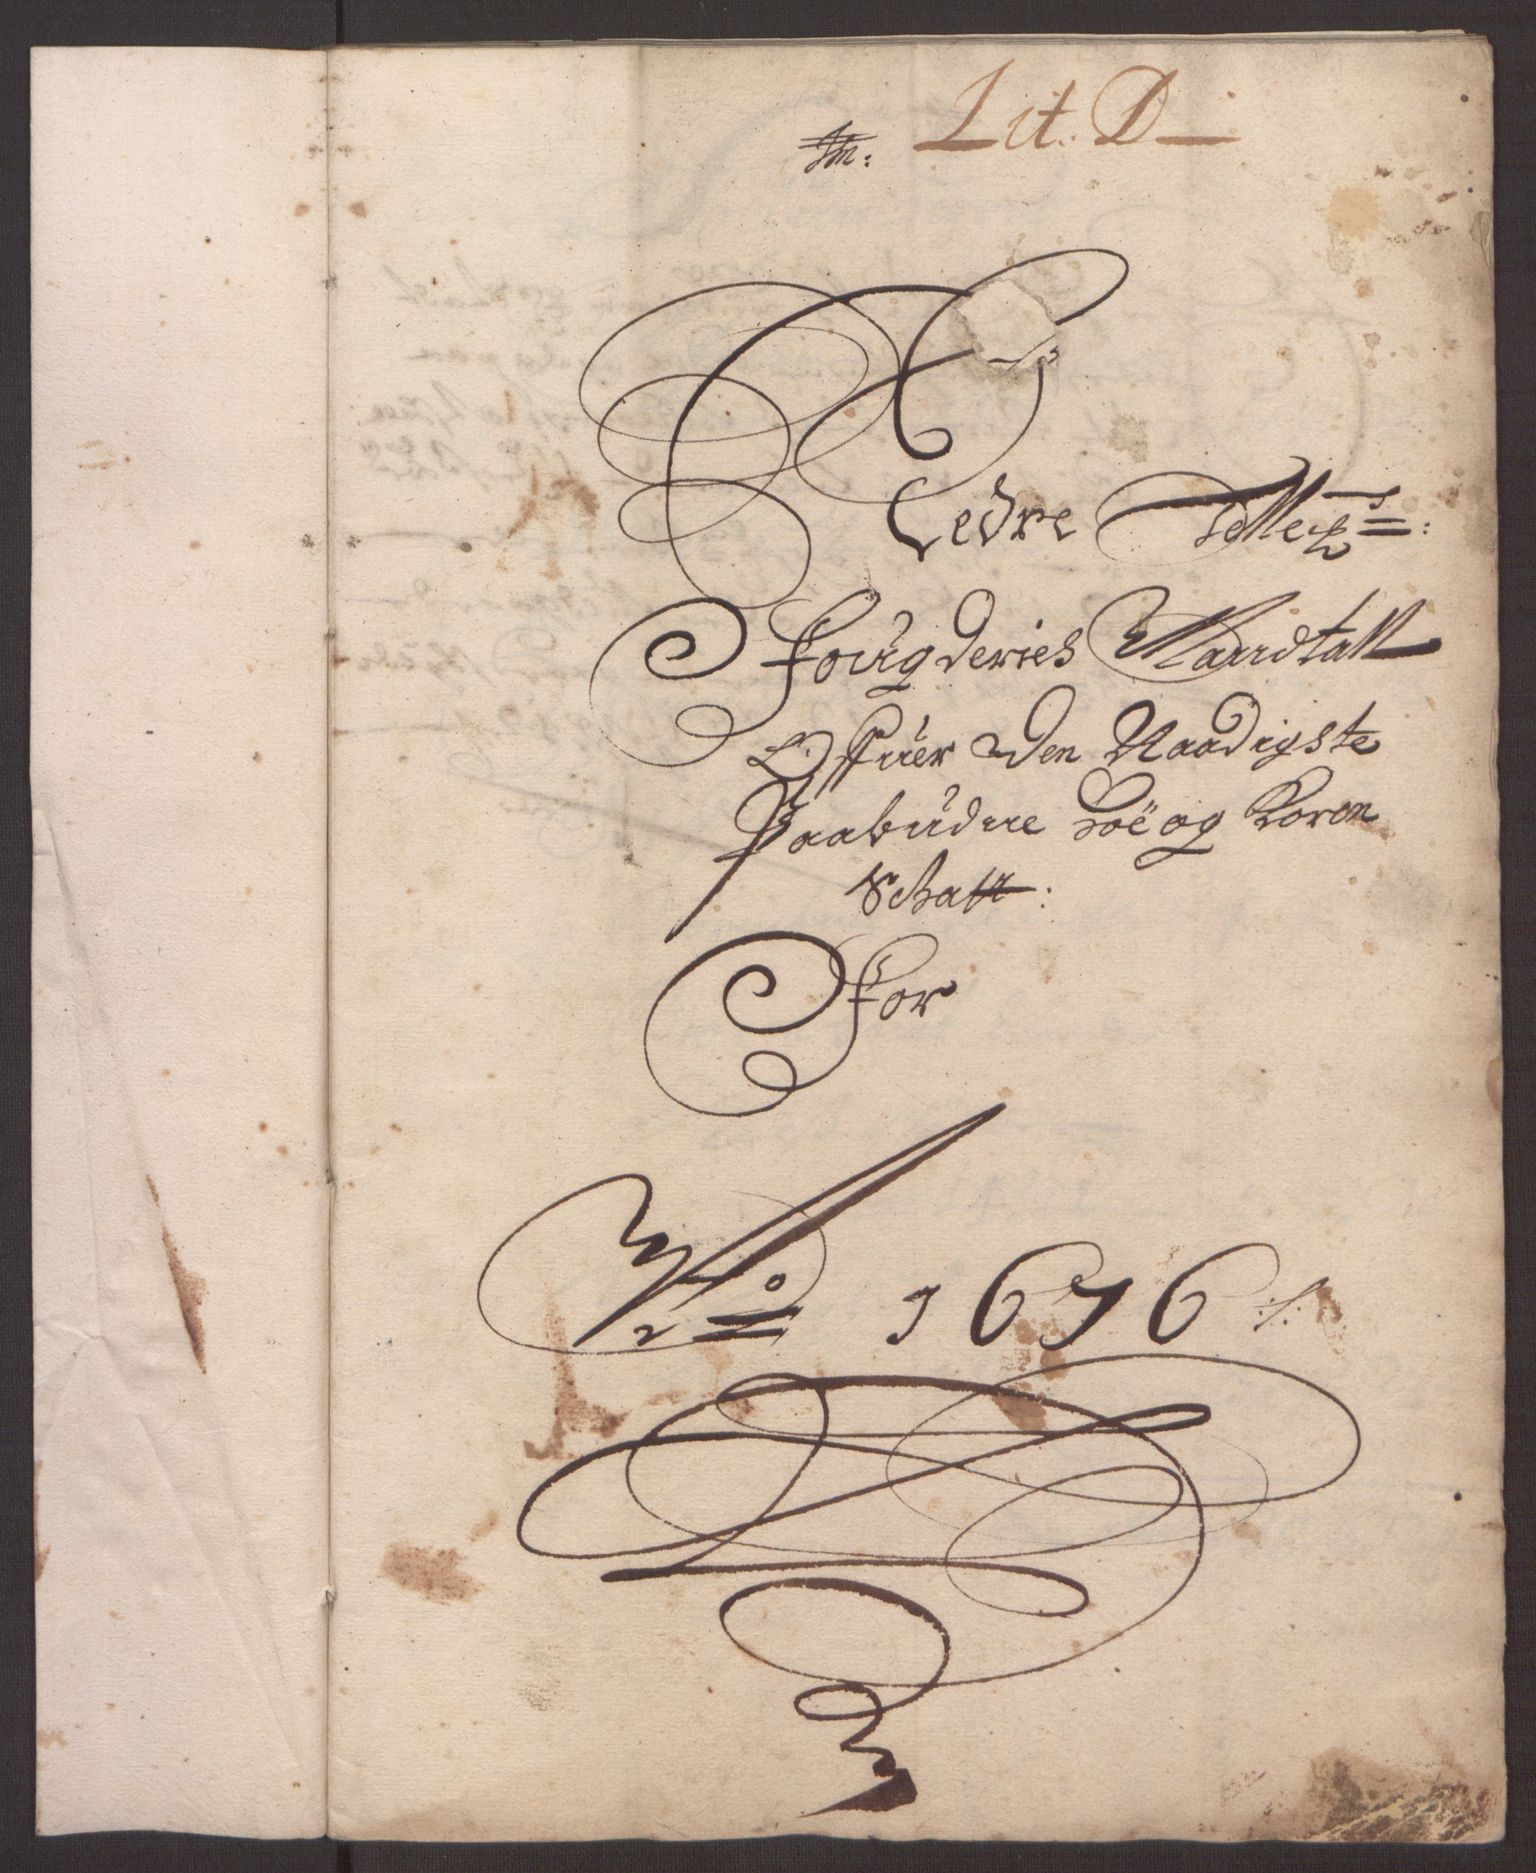 Lit. D
Nedre Tellemk:s
Fougderies Mandtall
Offuer den Naadigste
Paabudne Koe og Koren
Schatt:
For
Ao 1676